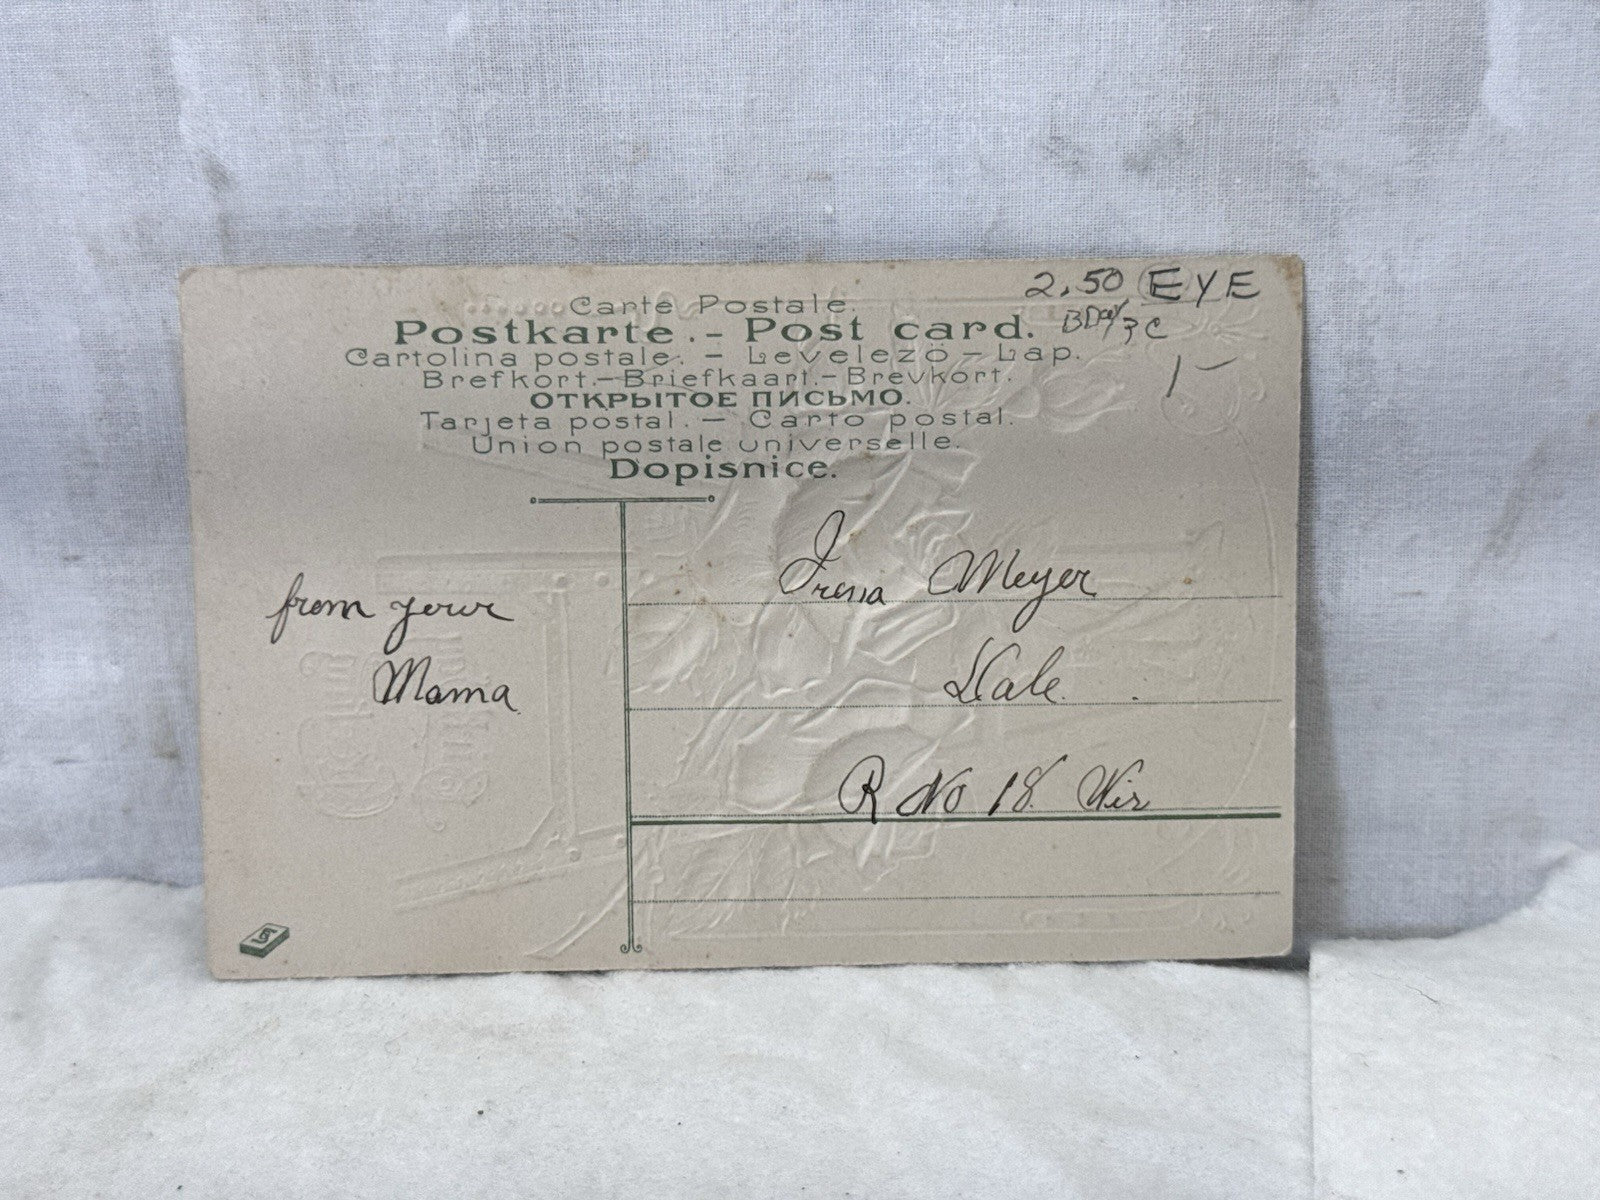 2.50 EYE
BDay 3c
1-
Carte Postale.
Postkarte. - Post card.
Cartolina postale. - Levelezö - Lap.
Brefkort. - Briefkaart. - Brevkort.
ОТКРЫТОЕ ПИСЬМО.
Tarjeta postal. - Carto postal.
Union postale universelle.
Dopisnice.
from your
Mama
Irena Meyer
Dale.
R No 18 Wis